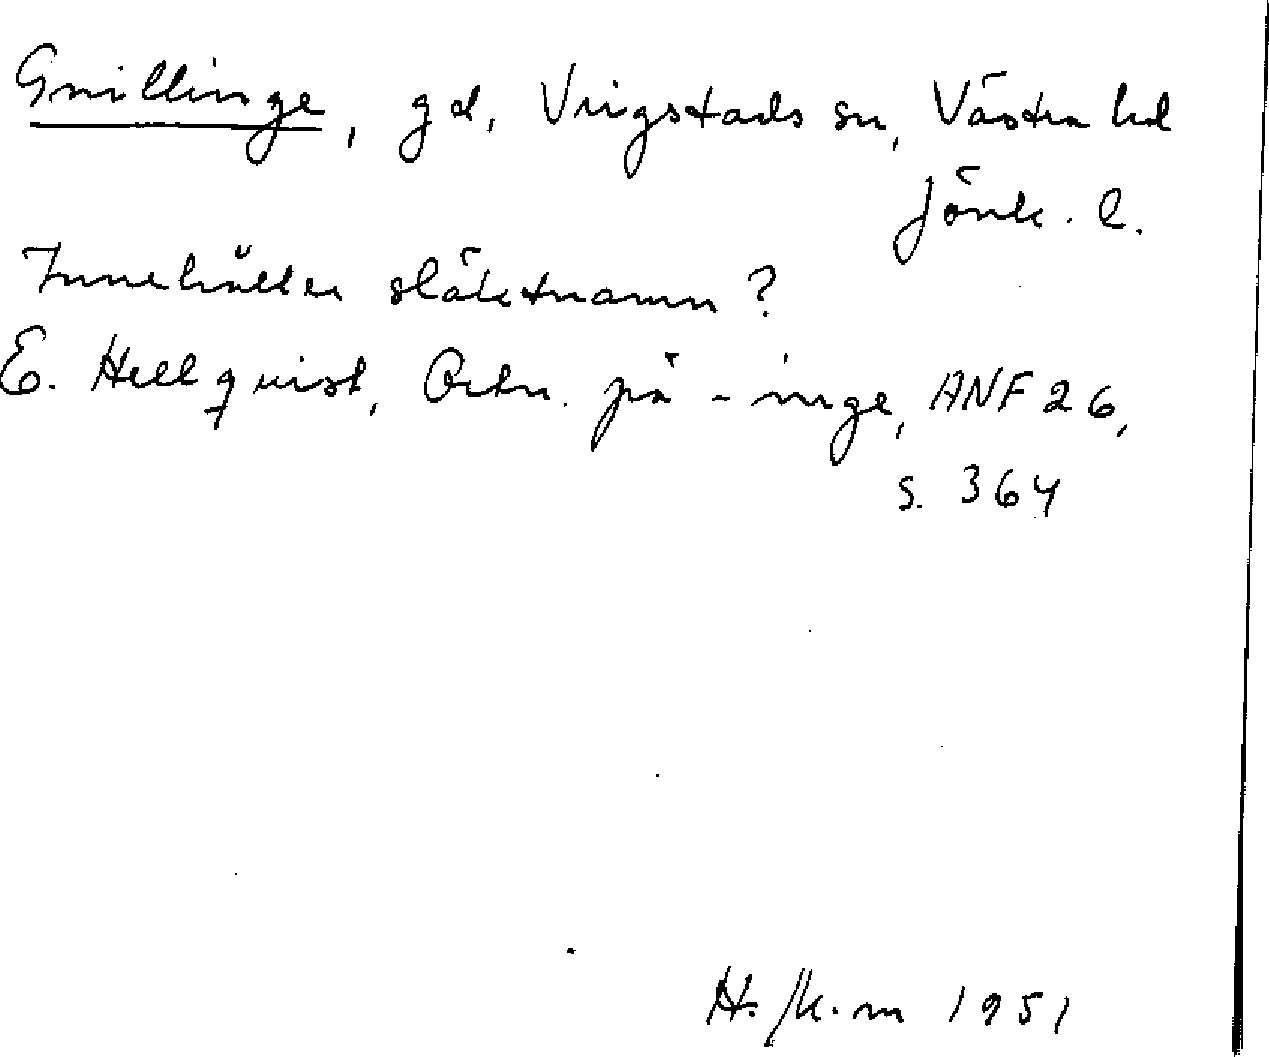 Gnillinge, gd, Vrigstads sn, Västra hd
Jönk. l.
Innehåller släktnamn?
E. Hellquist, Ortn. på -inge, ANF 26,
s. 364
H. /k.m 1951